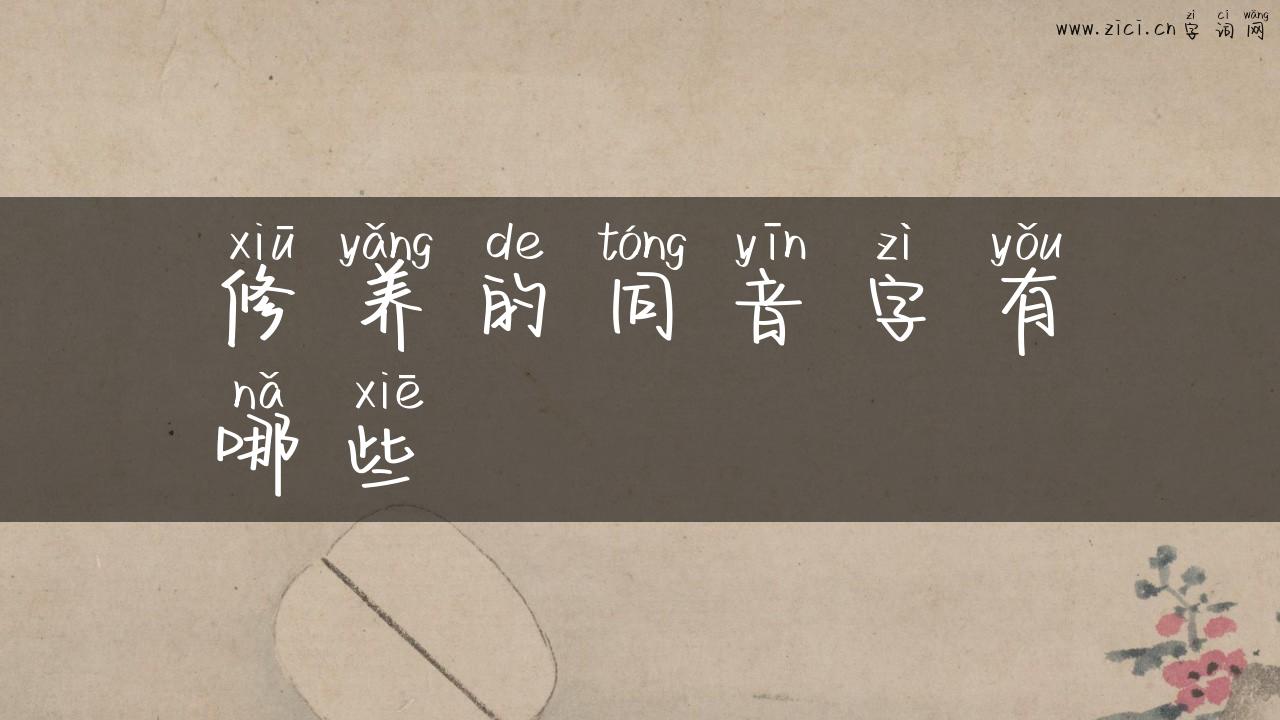 zì cí wǎng
www.zici.cn字词网
xiū yǎng de tóng yīn zì yǒu
修养的同音字有
nǎ xiē
哪些